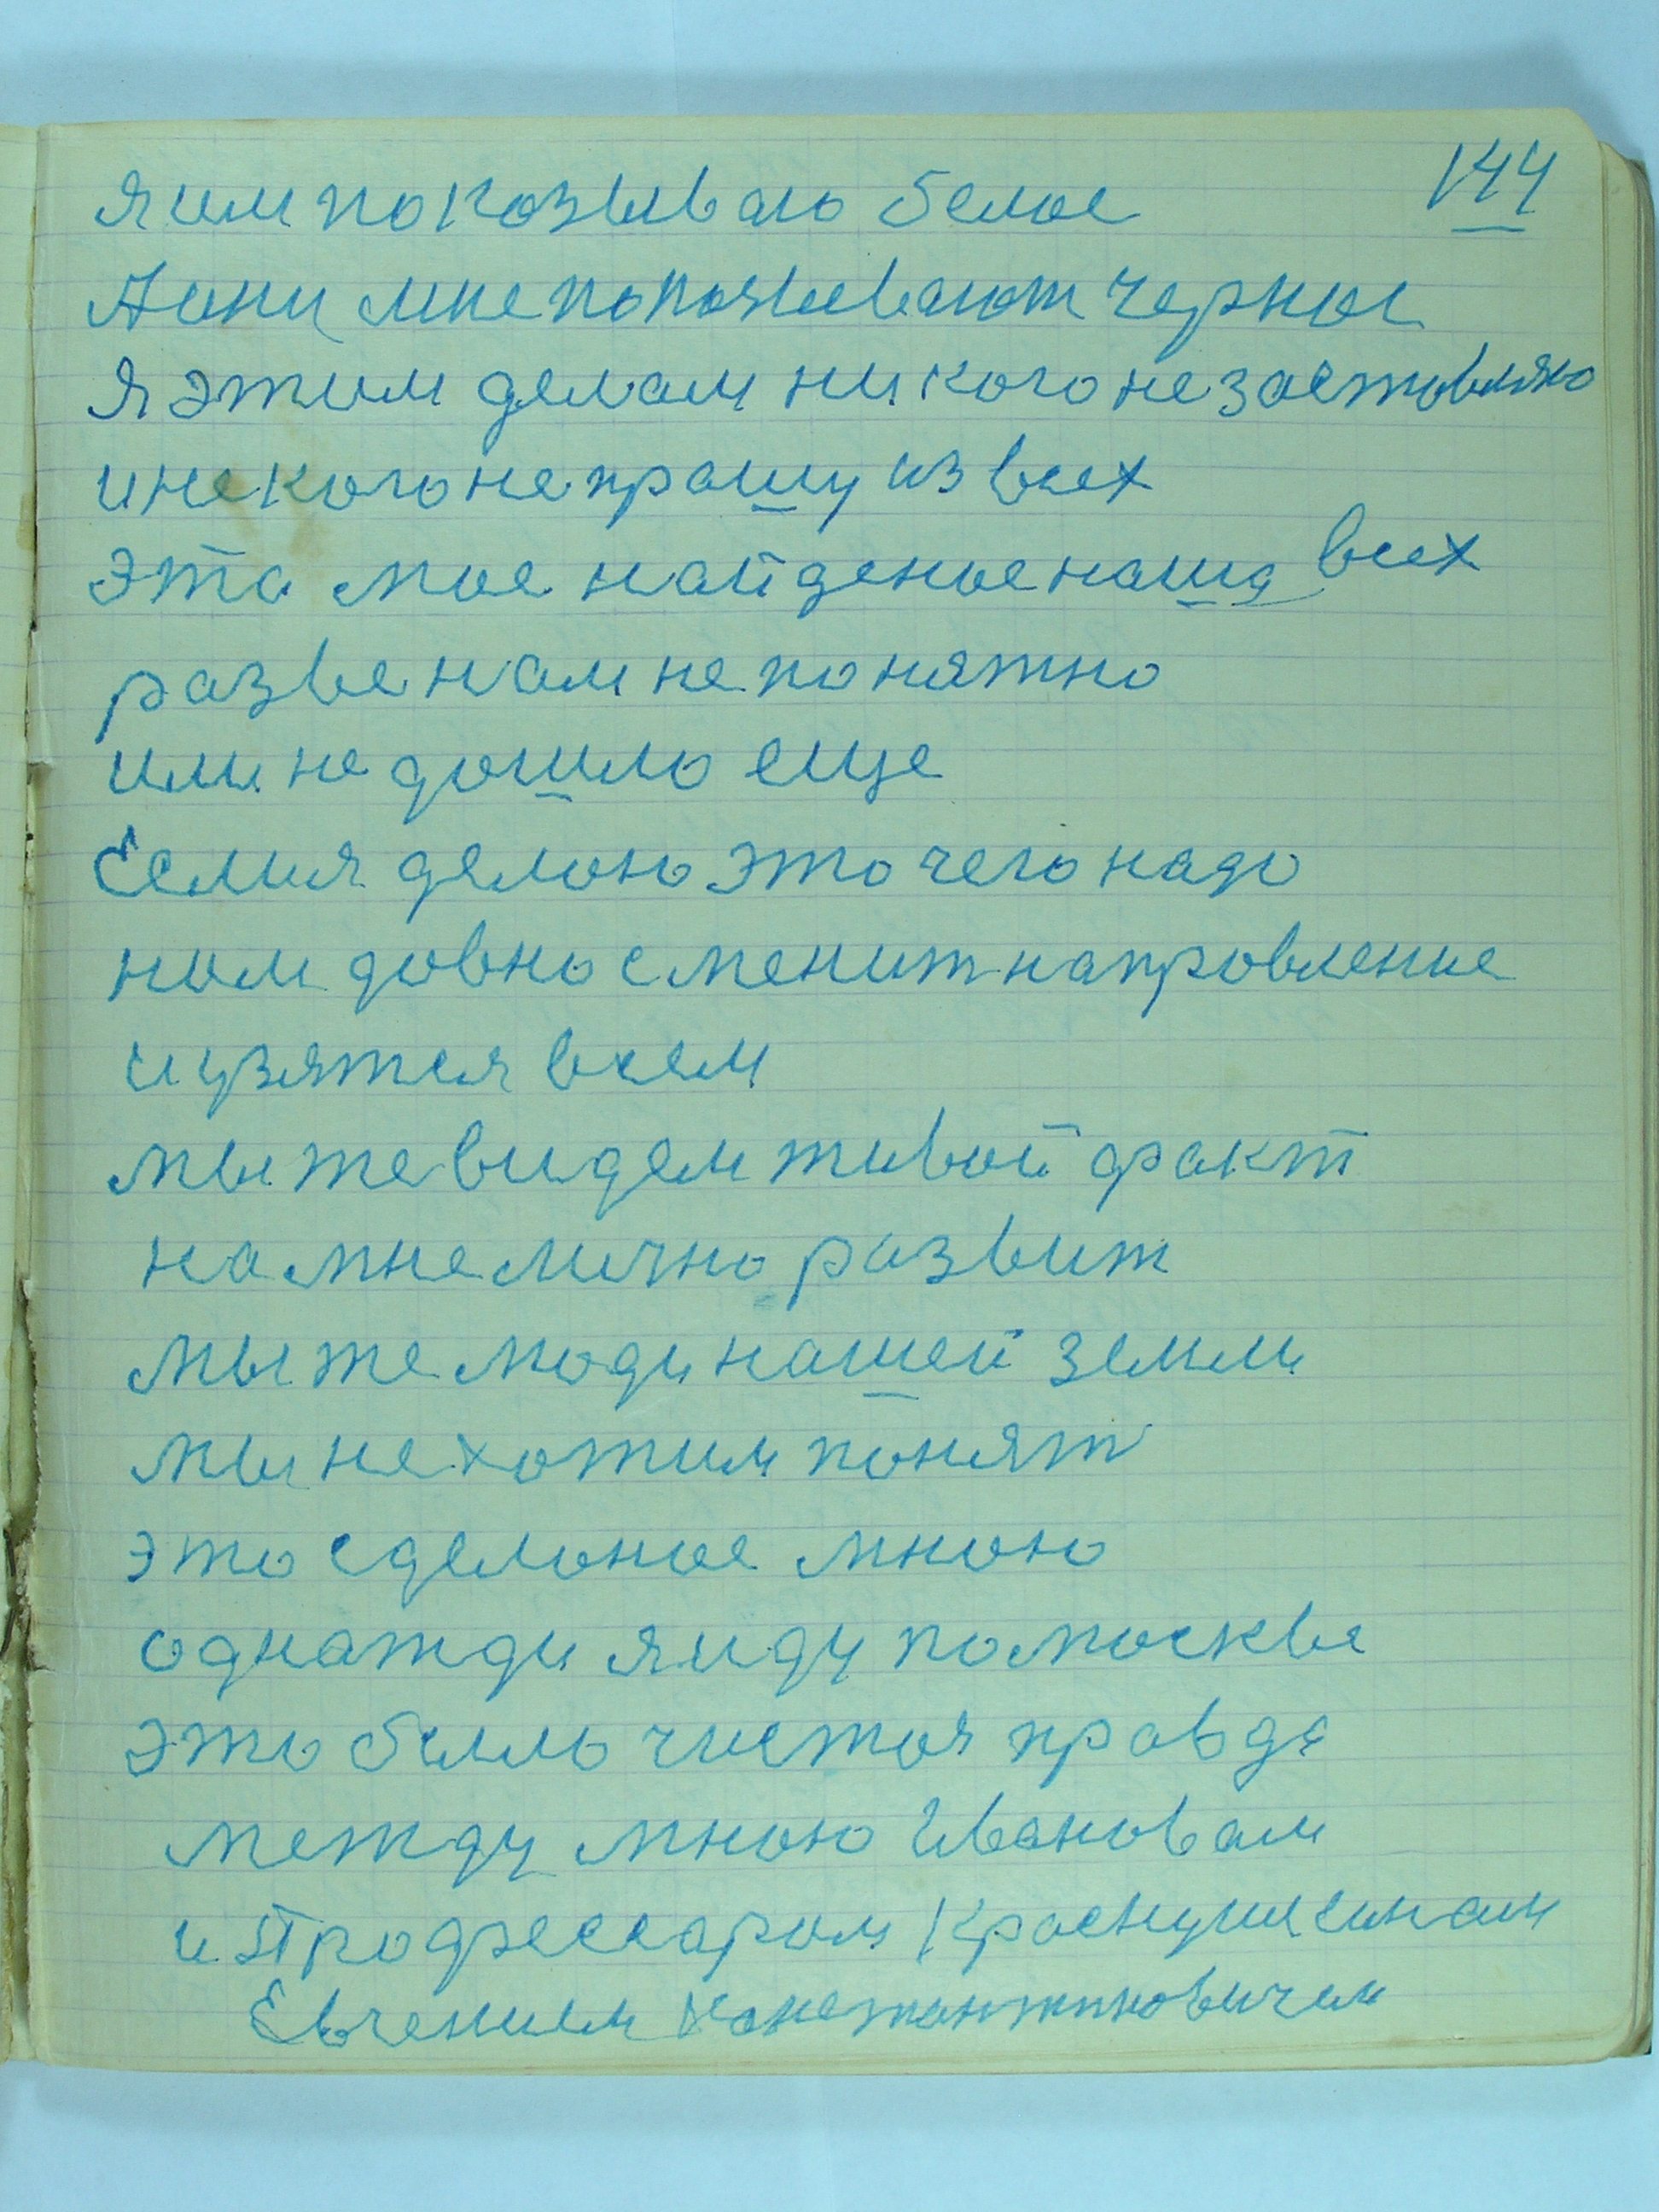 144
я им показываю белое
А они мне показывают черное
я этим делам никого не заставляю
и некого не прашу из всех
эта мое найденое наша всех
разве нам не понятно
или не дошло еще
Если я делаю это чего надо
нам давно сменит направление
и узятся всем
мы же видем живой факт
на мне лично развит
мы же люди нашей земли
мы не хотим понят
это сделоное мною
однажди я иду по москве
это было чистоя правда
между мною Ивановам
и Профессаром Краснушкинам
Евгением Константиновичем